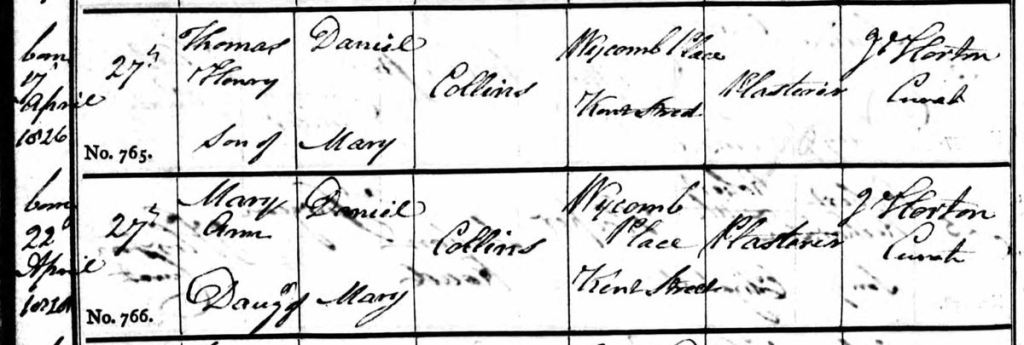 born
17
April
1826
27th
No. 765.
Thomas
Henry
Son of
Daniel
Mary
Collins
Wycomb Place
Kent Street
Plasterer
J Horton
Curate
born
22
April
27th
No. 766.
Mary
Ann
Daugr of
Daniel
Mary
Collins
Wycomb
Place
Kent Street
Plasterer
J Horton
Curate